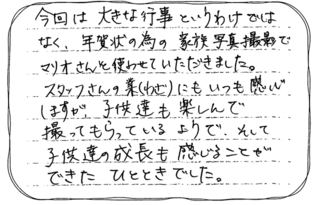 今回は大きな行事というわけでは
なく、年賀状の為の家族写真撮影で
マリオさんを使わせていただきました。
スタッフさんの業(わざ)にもいつも感心
しますが、子供達も楽しんで
撮ってもらっているようで、そして
子供達の成長も感じることが
できたひとときでした。